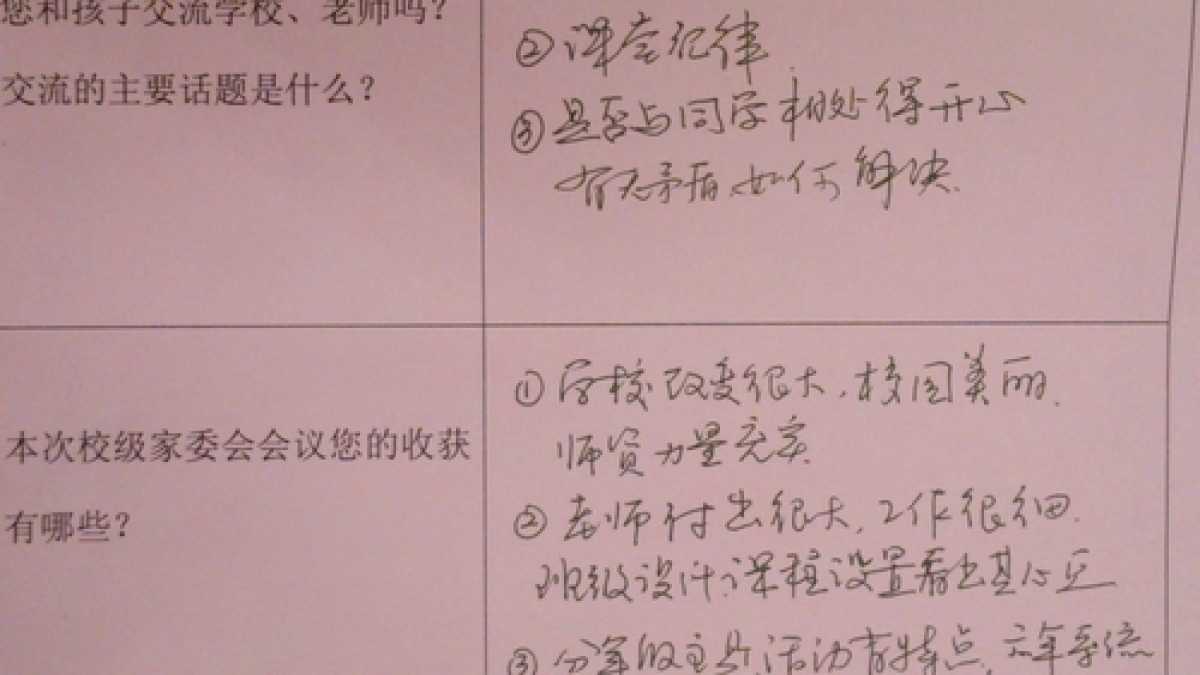 您和孩子交流学校、老师吗?
交流的主要话题是什么?
②课堂纪律
③是否与同学相处得开心
有无矛盾、如何解决.
本次校级家委会会议您的收获
有哪些?
①学校改变很大,校园美丽.
师资力量充实
②老师付出很大,工作很细.
班级设计、课程设置看出其心
③分年级主题活动有特点,六年系统